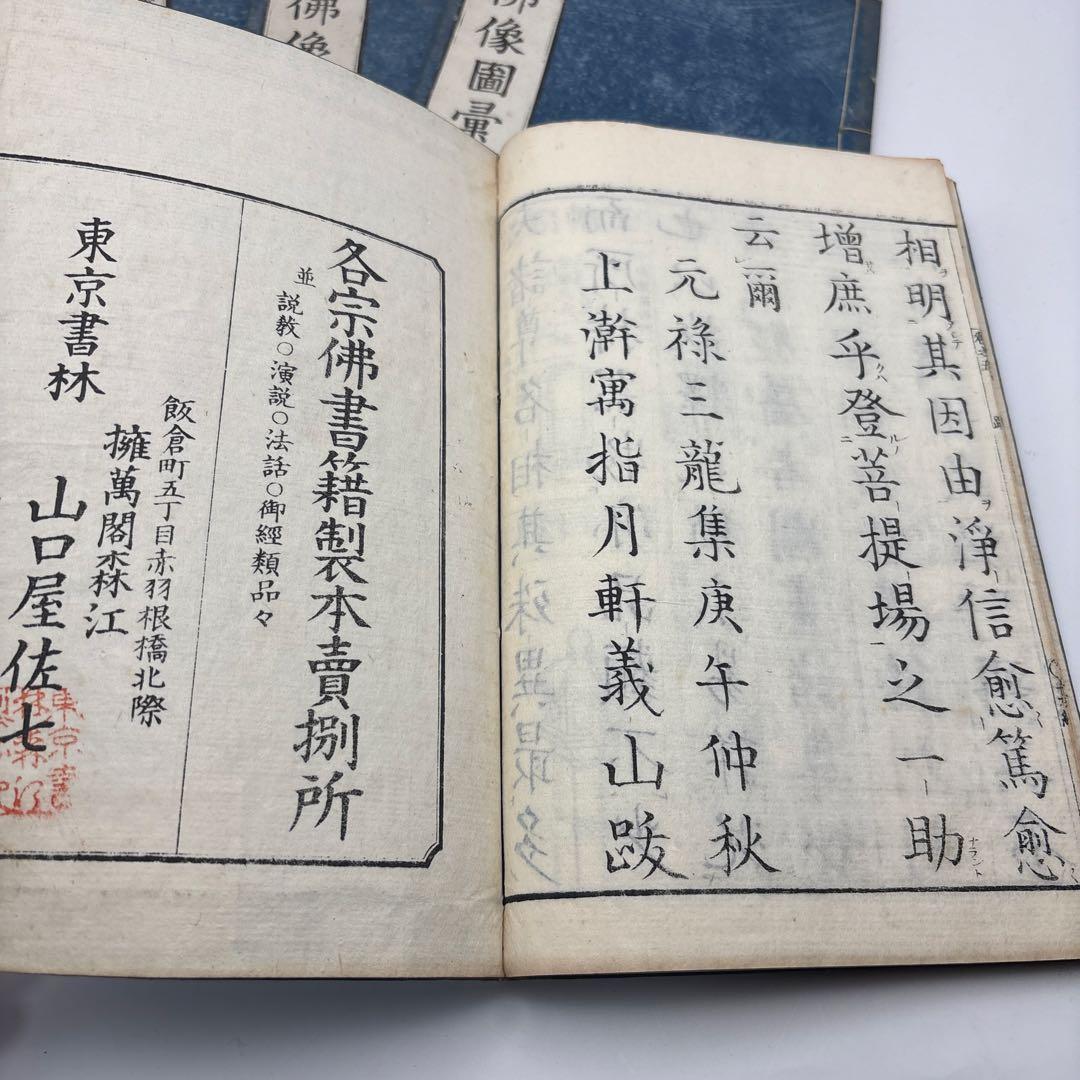 佛像
佛像圖彙
相明其因由淨信愈篤愈
增庶乎登菩提場之一助
云爾
元祿三龍集庚午仲秋
上澣寓指月軒義山跋
各宗佛書籍製本賣捌所
並説教○演説○法話○御經類品々
飯倉町五丁目赤羽根橋北際
東京書林 擁萬閣森江
山口屋佐七